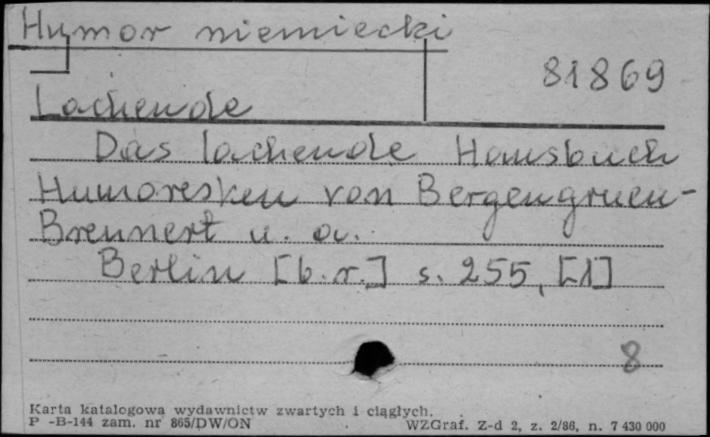 Humor niemiecki
81869
Lachende
Das lachende Hausbuch
Humoresken von Bergengruen-
Brennert u. a.
Berlin [b.r.] s. 255, [1]
8
Karta katalogowa wydawnictw zwartych i ciągłych.
P -B-144 zam. nr 865/DW/ON
WZGraf. Z-d 2, z. 2/86, n. 7 430 000